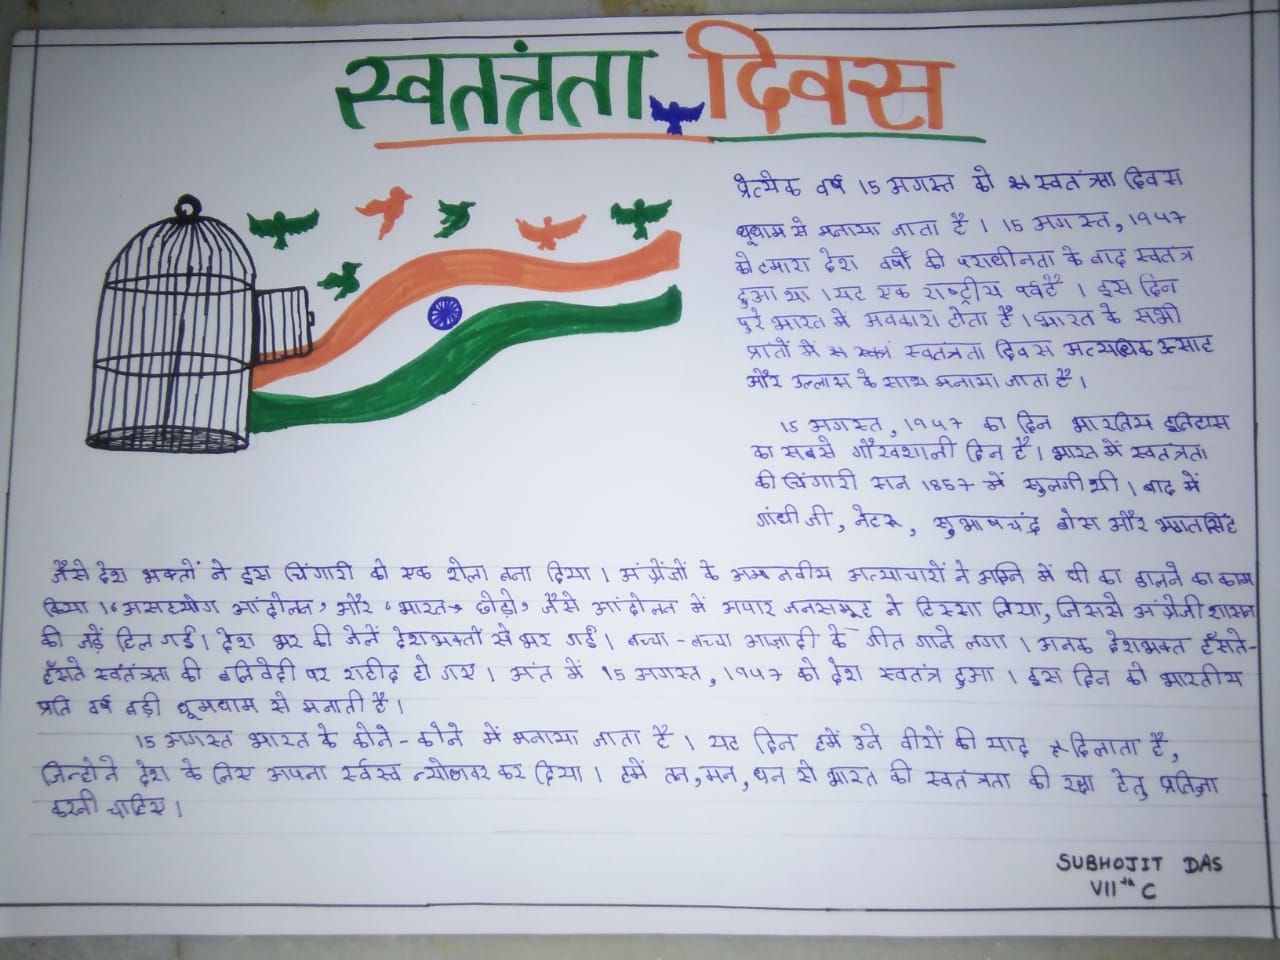 स्वतंत्रता दिवस
प्रत्येक वर्ष 15 अगस्त को स्वतंत्रता दिवस
धूमधाम से मनाया जाता है। 15 अगस्त, १९४७
को हमारा देश वर्षों की पराधीनता के बाद स्वतंत्र
हुआ था। यह एक राष्ट्रीय पर्व है। इस दिन
पुरे भारत में अवकाश होता है। भारत के सभी
प्रांतों में स्वतंत्रता दिवस अत्यधिक उत्साह
और उल्लास के साथ मनाया जाता है।
15 अगस्त, १९४७ का दिन भारतिय इतिहास
का सबसे गौरवशाली दिन है। भारत में स्वतंत्रता
की चिंगारी सन 1857 में सुलगी थी। बाद में
गांधी जी, नेहरू, सुभाषचंद्र बोस और भगतसिंह
जैसे देश भक्तों ने इस चिंगारी को एक शोला बना दिया। अंग्रेंजों के अमानवीय अत्याचारों ने अग्नि में घी का डालने का काम
किया। 'असहयोग आंदोलन' और 'भारत छोड़ो' जैसे आंदोलन में अपार जनसमूह ने हिस्सा लिया, जिससे अंग्रेजी शासन
की जड़ें हिल गईं। देश भर की जेलें देशभक्तों से भर गईं। बच्चा-बच्चा आज़ादी के गीत गाने लगा। अनक देशभक्त हँसते-
हँसते स्वतंत्रता की बलिवेदी पर शहीद हो गए। अंत में 15 अगस्त, १९४७ को देश स्वतंत्र हुआ। इस दिन को भारतीय
प्रति वर्ष बड़ी धूमधाम से मनाती है।
15 अगस्त भारत के कोने-कोने में मनाया जाता है। यह दिन हमें उन वीरों की याद दिलाता है,
जिन्होने देश के लिए अपना सर्वस्व न्योछावर कर दिया। हमें तन, मन, धन से भारत की स्वतंत्रता की रक्षा हेतु प्रतिज्ञा
करनी चाहिए।
SUBHOJIT DAS
VII th C